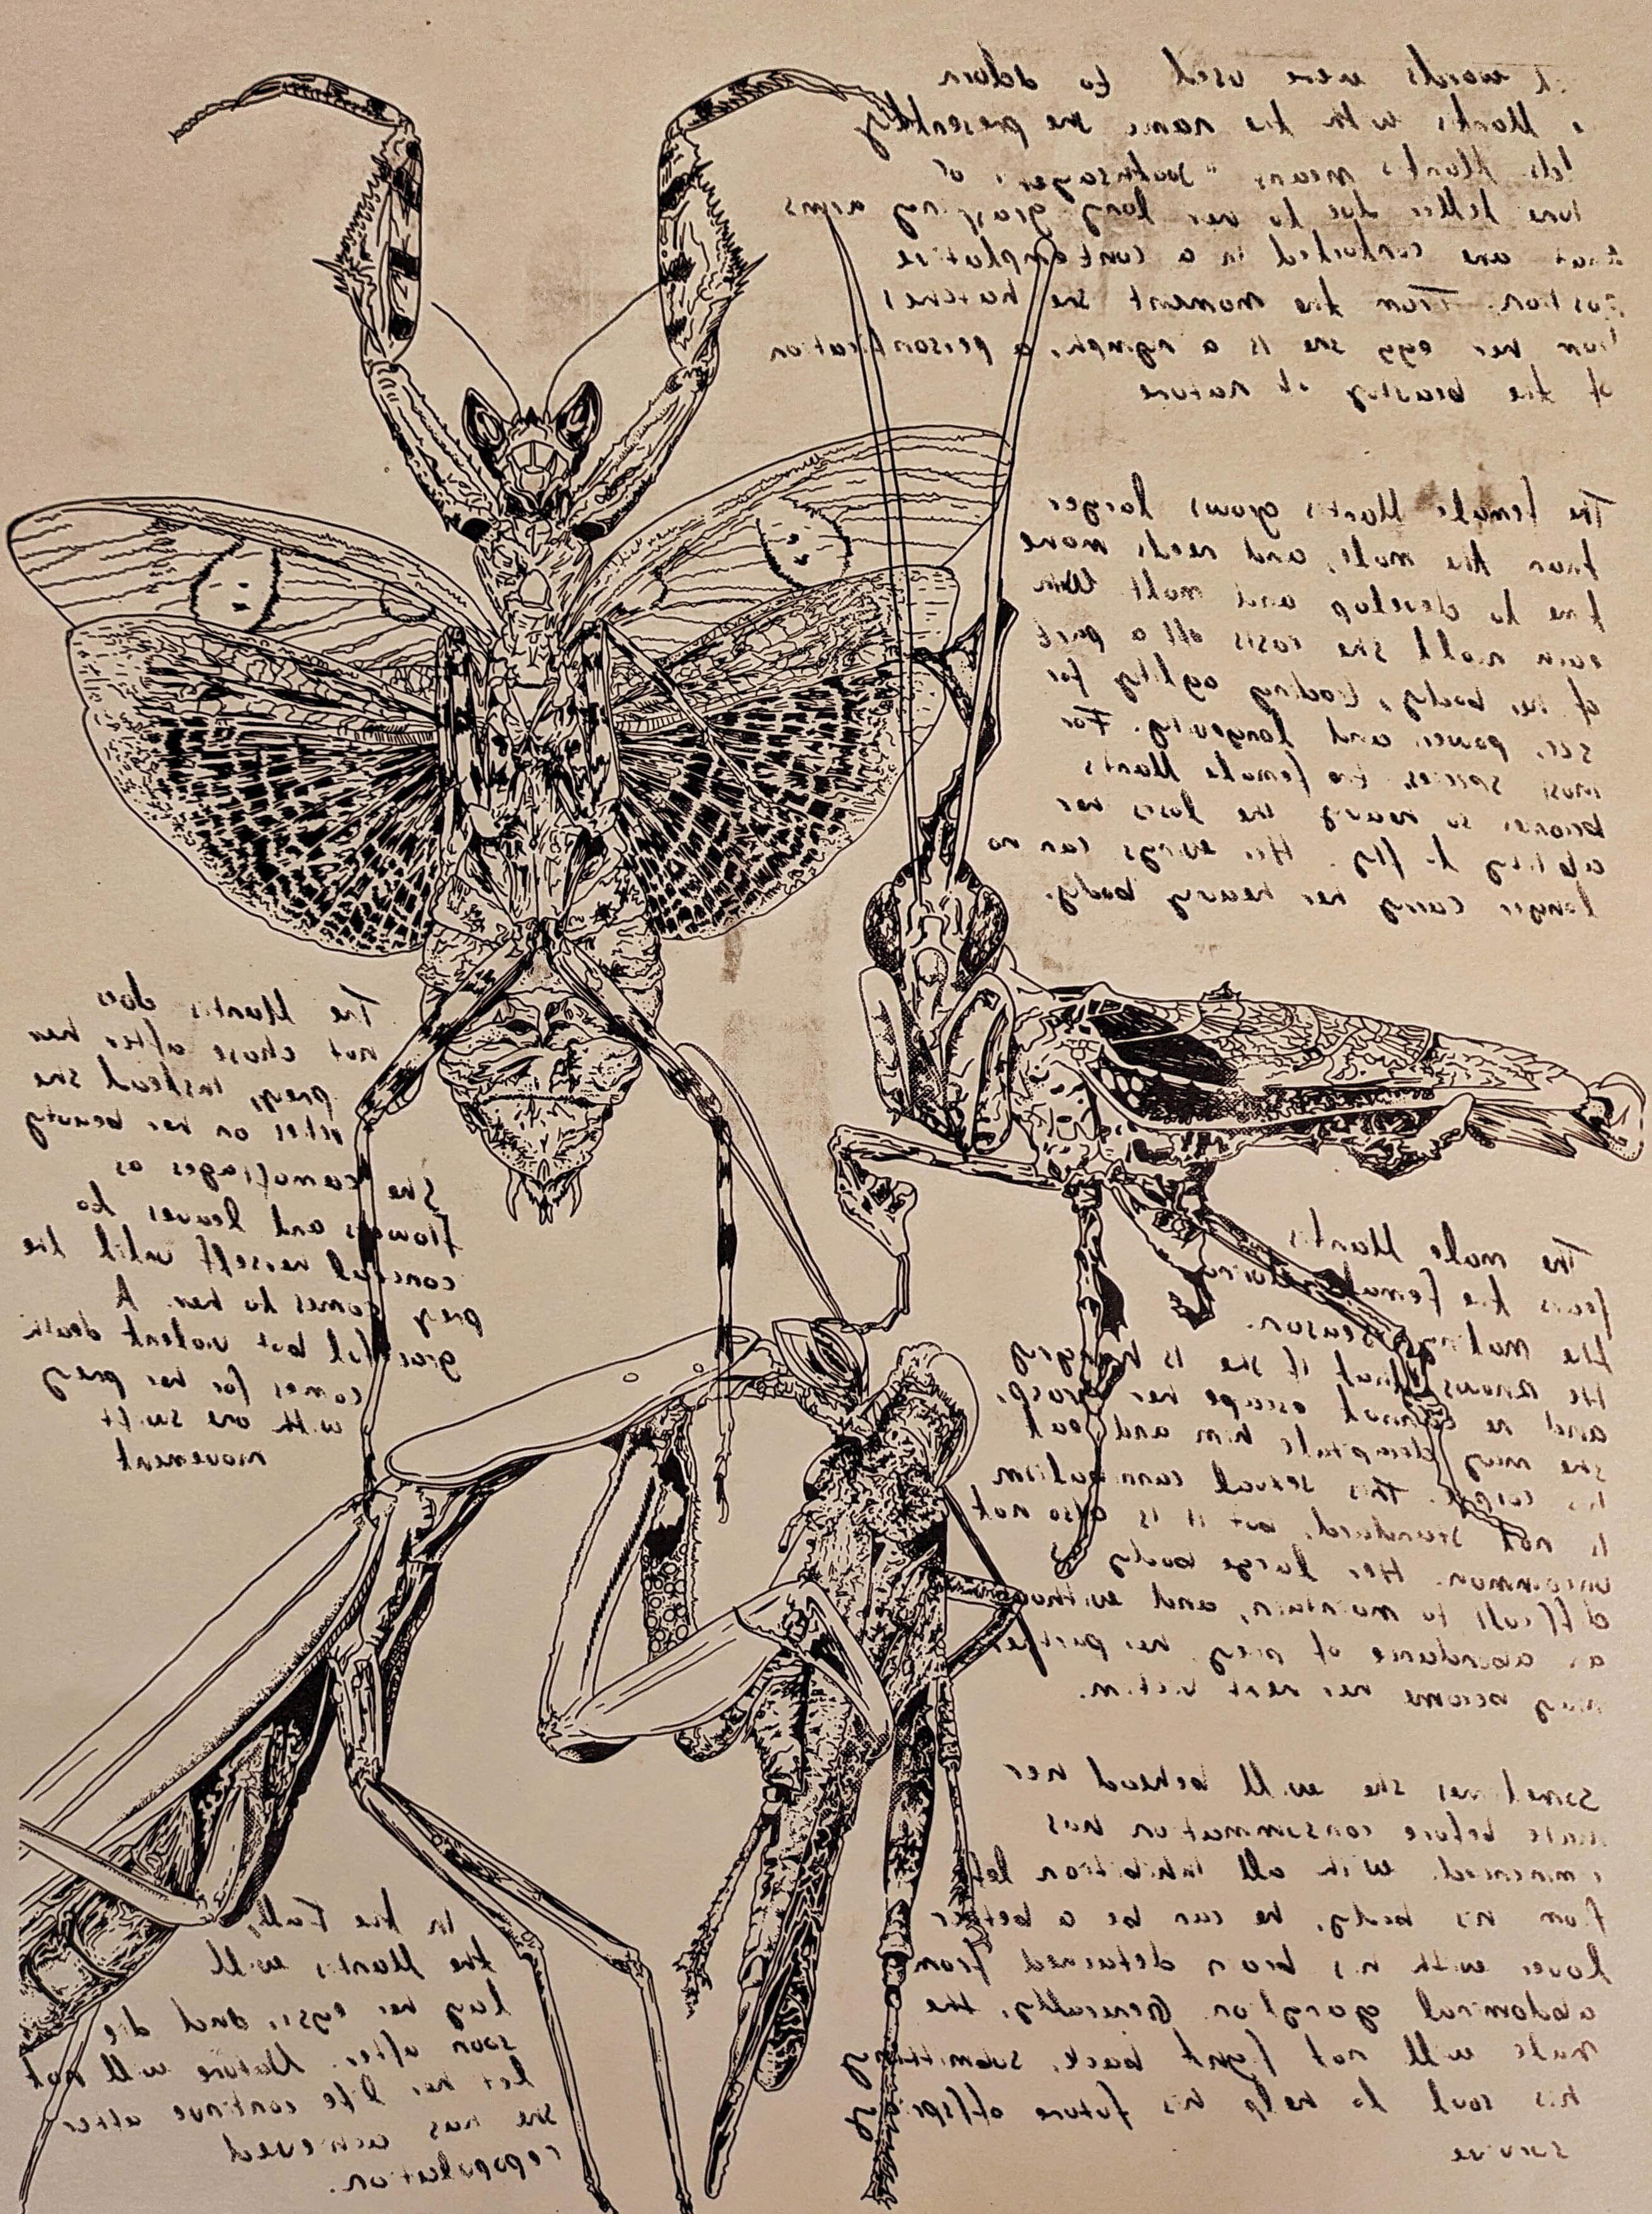 words were used to adorn
Mantis with the name she presently
Mantis means "soothsayer" o
due to her long grasping arms
that are contorted in a contemplative
position. From the moment she hatches
from her egg she is a nymph, a personification
of the beauty of nature
The female Mantis grows larger
than the male, and needs more
time to develop and molt. With
each molt she casts off a part
of her body, trading agility for
size, power and longevity. For
most species the female Mantis
becomes so heavy the loses her
ability to fly. Her wings can no
longer carry her heavy body.
The Mantis does
not chase after her
prey, instead she
relies on her beauty
She camoflages as
flowers and leaves to
conceal herself until the
prey comes to her. A
graceful but violent death
comes for her prey
with one swift
movement
The male Mantis
fears the female during
the mating season.
He knows that if she is hungry
and he cannot escape her grasp,
she may decapitate him and eat
his corpse. This sexual cannibalism
is not standard, but it is also not
uncommon. Her large body
difficult to maintain, and without
an abundance of prey, her partner
may become her next victim.
Sometimes she will behead her
mate before consummation has
commenced. With all inhibition left
from his body, he can be a better
lover with his brain detained from
abdominal ganglion. Generally, the
male will not fight back, submitting
his soul to help his future offspring
survive
In the Fall,
the Mantis will
lay her eggs, and die
soon after. Nature will not
let her life continue after
she has achieved
repopulation.